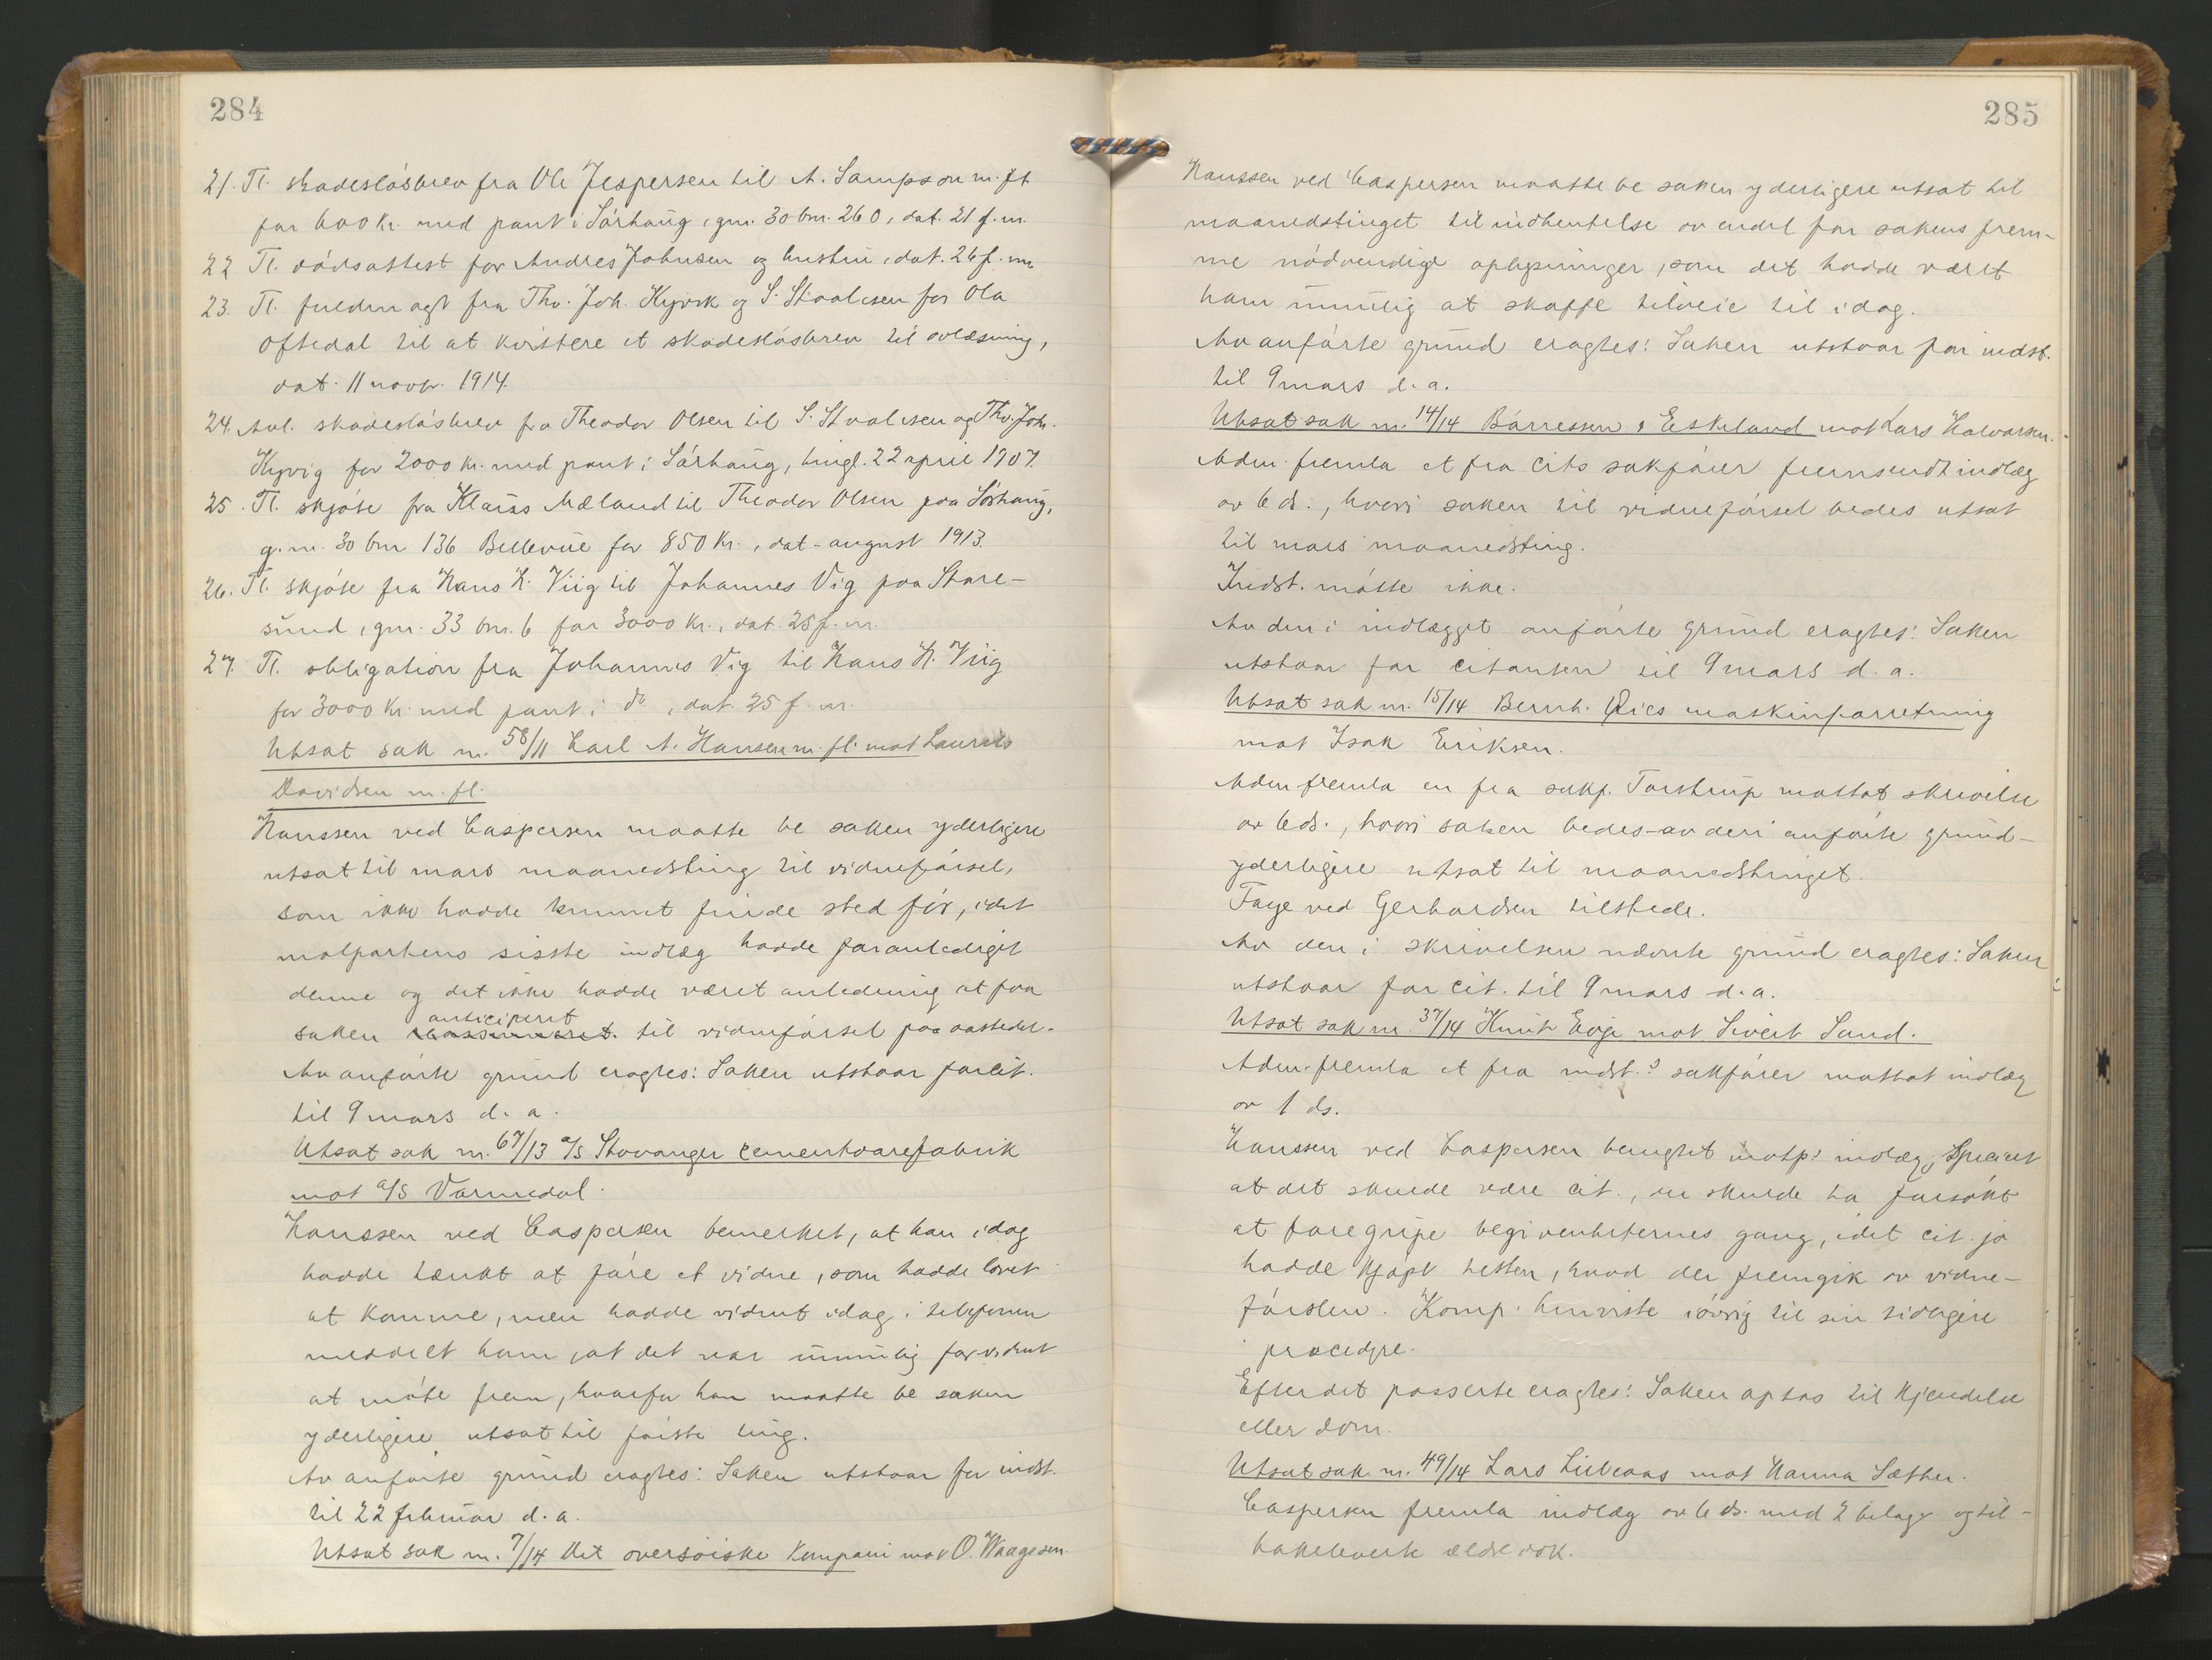 284
21. Tl. skadesløsbrev fra Ole Jespersen til A. Sampson m. fl.
for 600 kr. med pant i Sørhaug, gnr. 30 bnr. 260, dat. 21 f. m.
22 Tl. dødsattest for Andres Johnsen og hustru, dat. 26 f. m.
23. Tl. fuldmagt fra Tho. Joh. Kyvik og S. Staalesen for Ola
Oftedal til at kvittere et skadesløsbrev til avlæsning,
dat. 11 novbr. 1914.
24. Avl. skadesløsbrev fra Theodor Olsen til S. Staalesen og Tho. Joh.
Kyvig for 2000 kr. med pant i Sørhaug, tingl. 22 april 1907.
25. Tl. skjøte fra Klaus Mæland til Theodor Olsen paa Sørhaug,
g. nr. 30 bnr 136 Bellevue for 850 kr., dat - august 1913.
26. Tl. skjøte fra Hans H. Viig til Johannes Vig paa Store-
sund, gnr. 33 bnr. 6 for 3000 kr., dat. 25 f. m.
27. Tl. obligation fra Johannes Vig til Hans H. Viig
for 3000 kr. med pant i do, dat. 25 f. m.
Utsat sak nr. 58/11 Carl A. Hansen m. fl. mot Laurits
Davidsen m. fl.
Hanssen ved Caspersen maatte be saken yderligere
utsat til mars maanedsting til vidneførsel,
som ikke hadde kunnet finde sted før, idet
motpartens sisste indlæg hadde foranlediget
denne og det ikke hadde været anledning at faa
anticiperet
saken til vidneførsel paa aastedet.
Av anførte grund eragtes: Saken utstaar for cit.
til 9 mars d. a.
Utsat sak nr. 67/13 a/s Stavanger cementvarefabrik
mot a/s Varmedal.
Hanssen ved Caspersen bemerket, at han idag
hadde tænkt at føre et vidne, som hadde lovet
at komme, men hadde vidnet idag i telefonen
meddelt ham, at det var umulig for vidnet
at møte frem, hvorfor han maatte be saken
yderligere utsat til første ting.
Av anførte grund eragtes: Saken utstaar for indst.
til 22 februar d. a.
Utsat sak nr. 7/14 Det oversøiske Kompani mot O. Waagesen.
285
Hanssen ved Caspersen maatte be saken yderligere utsat til
maanedstinget til indhentelse av endel for sakens frem-
me nødvendige oplysninger, som det hadde været
ham umulig at skaffe tilveie til idag.
Av anførte grund eragtes: Saken utstaar for indst.
til 9 mars d. a.
Utsat sak nr. 14/14 Børressen & Eskeland mot Lars Halvorsen.
Adm. fremla et fra cits sakfører fremsendt indlæg
av 6 ds., hvori saken til vidneførsel bedes utsat
til mars maanedsting.
Indst. møtte ikke.
Av den i indlægget anførte grund eragtes: Saken
utstaar for citanten til 9 mars d. a.
Utsat sak nr. 15/14 Bernh. Øies maskinforretning
mot Isak Eriksen.
Adm fremla en fra sakf. Torstrup mottat skrivelse
av 6 ds., hvori saken bedes - av deri anførte grund -
yderligere utsat til maanedstinget.
Faye ved Gerhardsen tilstede.
Av den i skrivelsen nævnte grund eragtes: Saken
utstaar for cit. til 9 mars d. a.
Utsat sak nr 37/14 Knut Evje mot Sivert Sund.
Adm. fremla et fra indst.s sakfører mottat indlæg
av 1 ds.
Hanssen ved Caspersen benegtet motp.s indlæg, specielt
at det skulde være cit., der skulde ha forsøkt
at foregripe begivenheternes gang, idet cit. jo
hadde kjøpt hesten, hvad der fremgik av vidne-
førslen. Komp. henviste iøvrig til sin tidligere
procedyre.
Efter det passerte eragtes: Saken optas til kjendelse
eller dom.
Utsat sak nr. 49/14 Lars Lillesaas mot Hanna Sæther.
Caspersen fremla indlæg av 6 ds. med 2 bilag og til-
bakeleverte ældre dok.